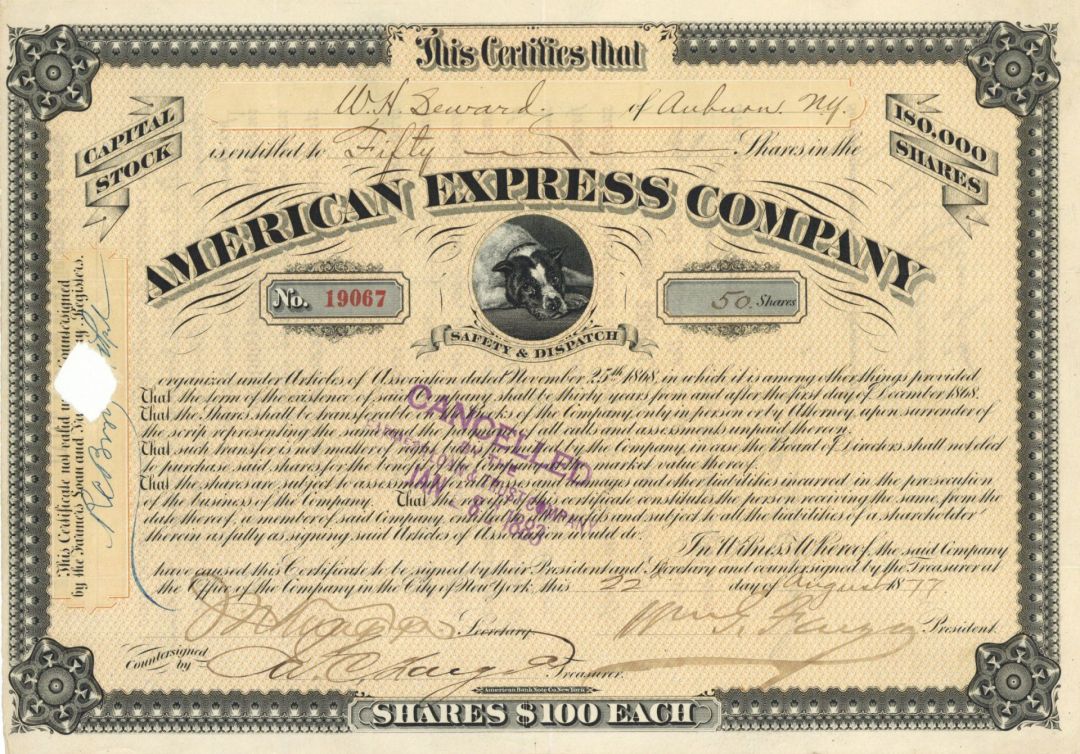 This Certifies that
W. H. Seward of Auburn N.Y.
CAPITAL STOCK
180,000 SHARES
is entitled to Fifty Shares in the
AMERICAN EXPRESS COMPANY
No. 19067
50 Shares
SAFETY & DISPATCH
organized under Articles of Association dated November 25th 1868, in which it is among other things provided
That the term of the existence of said Company shall be thirty years from and after the first day of December 1868.
That the Shares shall be transferable on the books of the Company, only in person or by Attorney, upon surrender of
the scrip representing the same and the payment of all calls and assessments unpaid thereon.
That such transfer is not matter of right, but by the Company, in case the Board of Directors shall not elect
to purchase said shares for the benefit of the Company at the market value thereof.
That the shares are subject to assessment for losses and damages and other liabilities incurred in the prosecution
of the business of the Company. That the receipt of this certificate constitutes the person receiving the same, from the
date thereof, a member of said Company, entitled to all the benefits and subject to all the liabilities of a shareholder
therein as fully as signing said Articles of Association would do.
In Witness Whereof, the said Company
have caused this Certificate to be signed by their President and Secretary and countersigned by the Treasurer at
the Office of the Company in the City of New York, this 22 day of August 1877
Secretary.
Wm. G. Fargo President.
Countersigned by
Treasurer.
American Bank Note Co. New York
SHARES $100 EACH
This Certificate not valid Countersigned
by the Farmers Loan and Registers.
CANCELLED
BY THE
FARMERS LOAN & TRUST COMPANY
JAN 8 1883